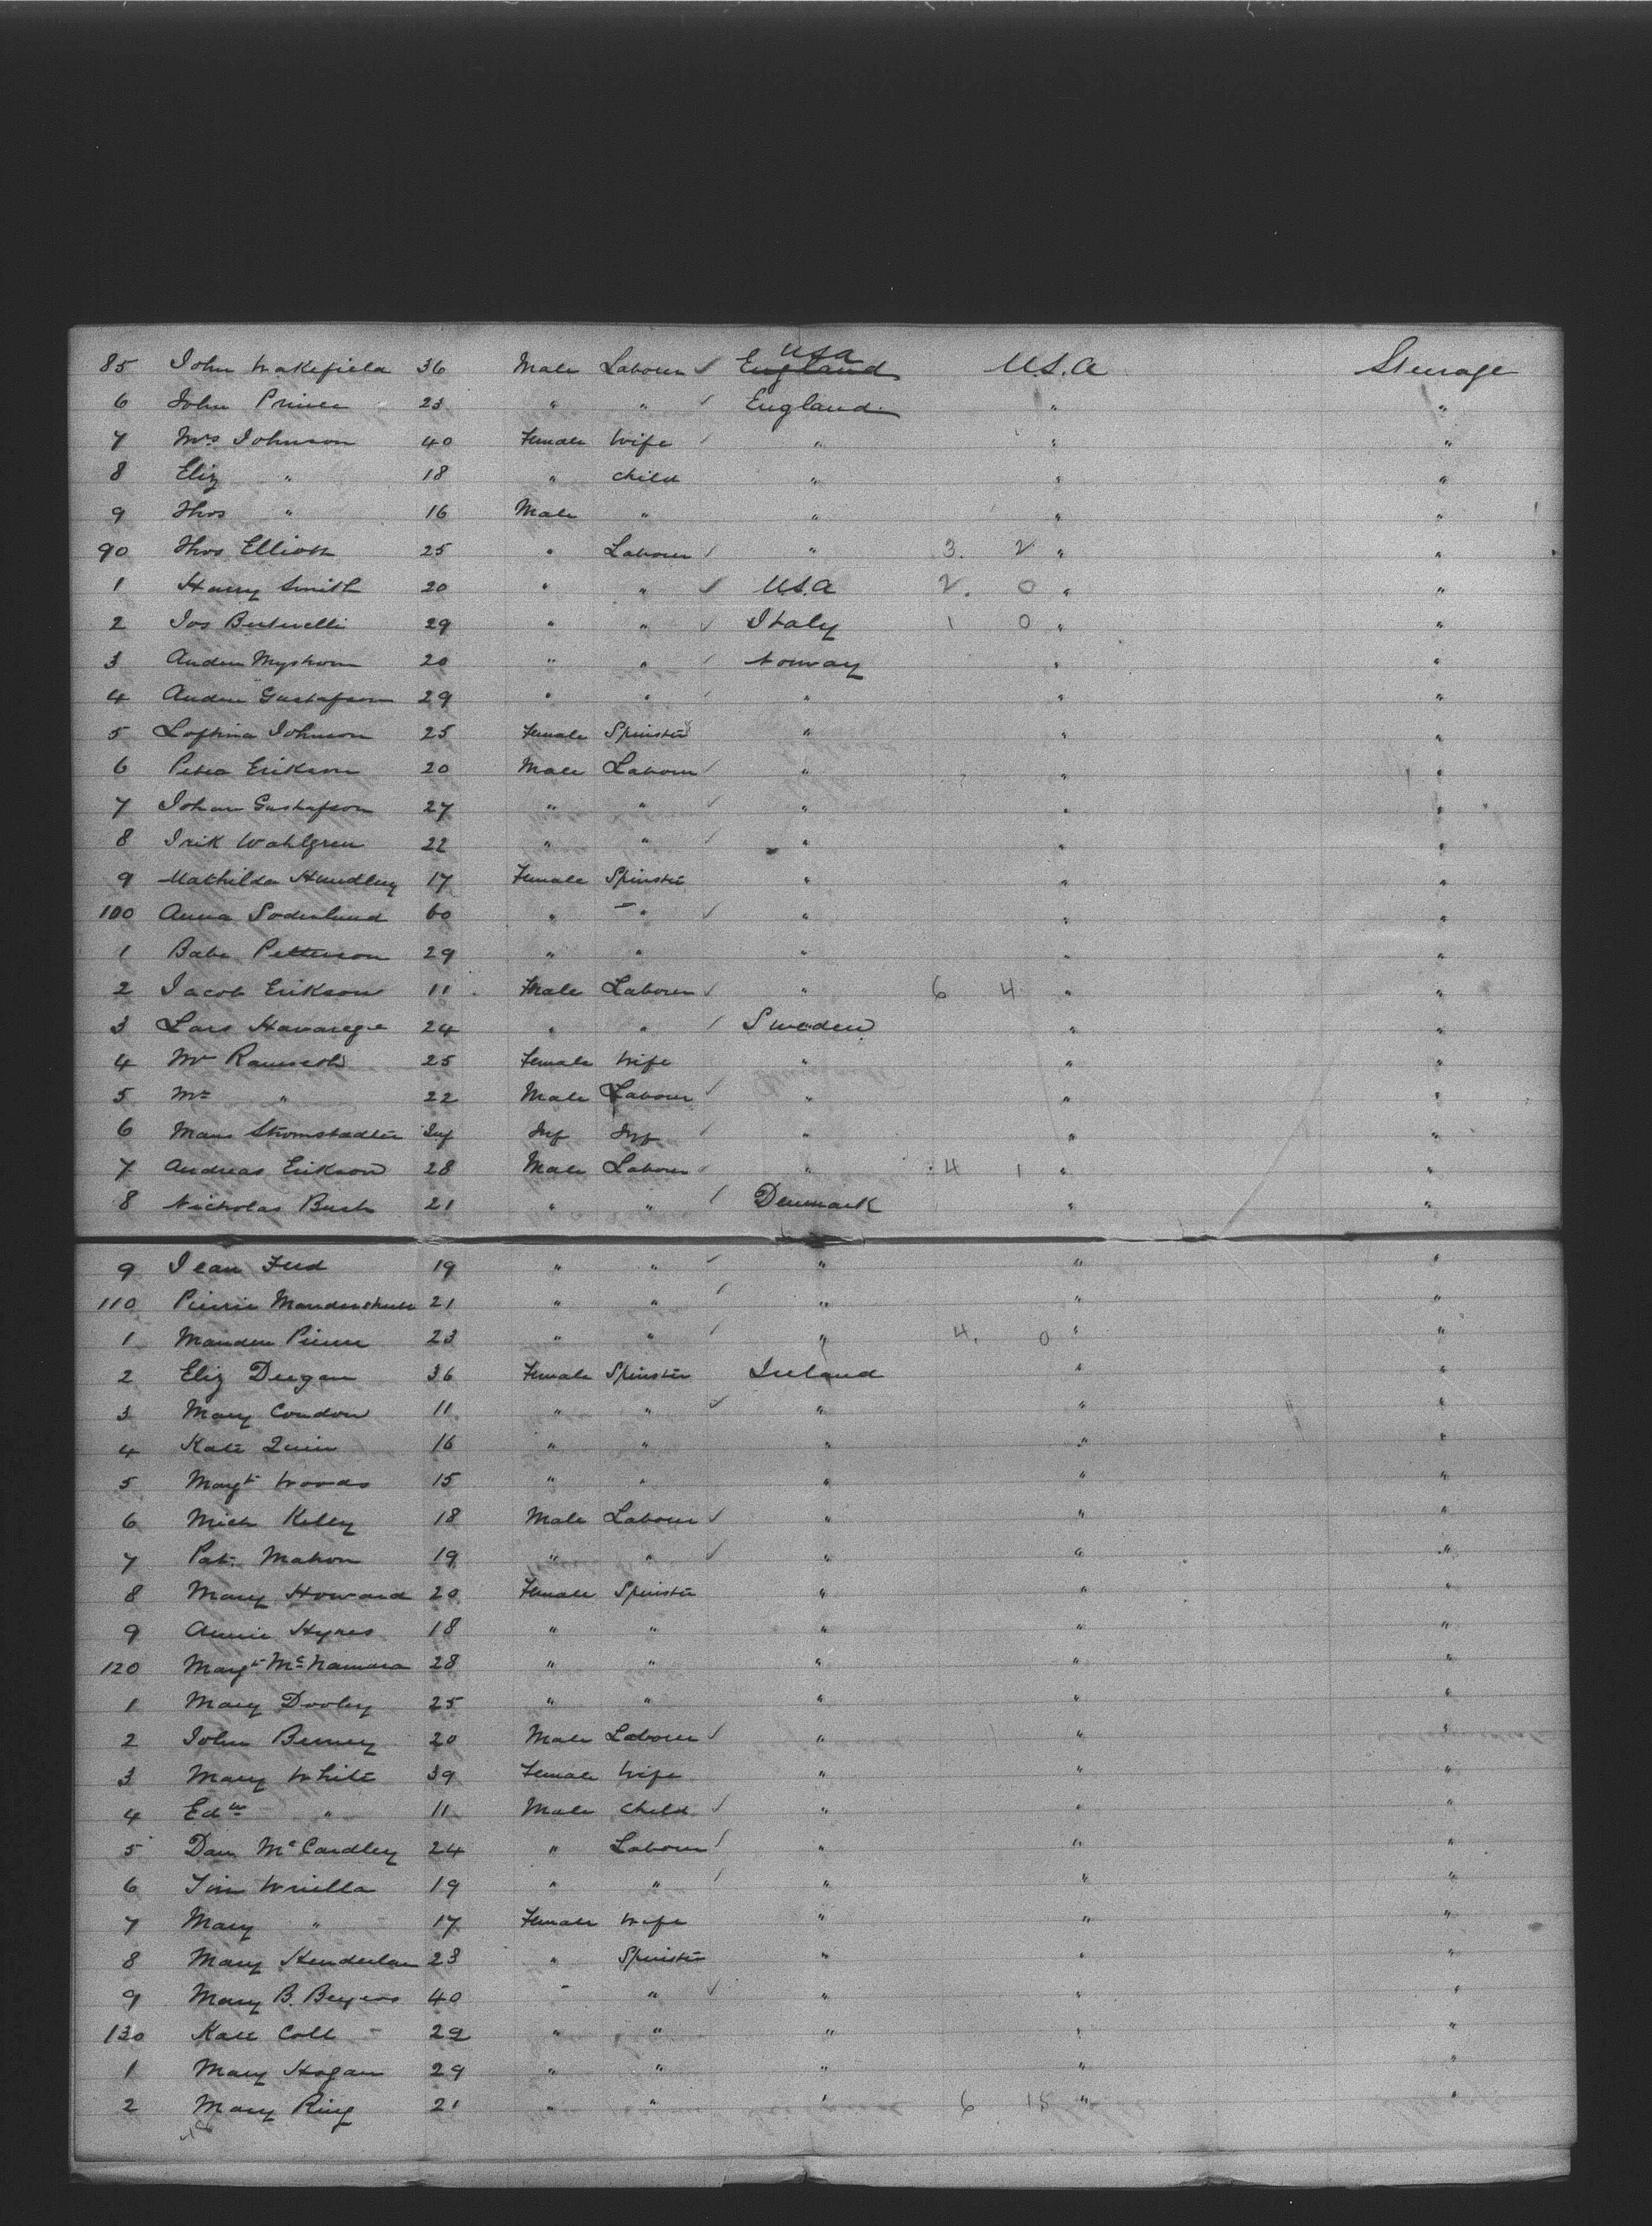 85 John Wakefield 36 Male Labourer ✓ England USA U.S.A Steerage
6 John Prince 23 " " ✓ England " "
7 Mrs Johnson 40 Female Wife ✓ " " "
8 Eliz " 18 " child " " "
9 Thos " 16 Male " " " "
90 Thos Elliott 25 " Labourer ✓ " 3. 2 " "
1 Harry Smith 20 " " ✓ U.S.A 2. 0 " "
2 Jos 29 " " ✓ Italy 1 0 " "
3 20 " " ✓ Norway " "
4 Gustafson 29 " " ✓ " " "
5 Johnson 25 Female Spinster " " "
6 Erikson 20 Male Labourer ✓ " " "
7 Johan Gustafson 27 " " ✓ " " "
8 Irik Wahlgren 22 " " ✓ " " "
9 Mathilda 17 Female Spinster " " "
100 Anna Soderlund 60 " " ✓ " " "
1 Babe Petterson 29 " " " " "
2 Jacob Erikson 11 Male Labourer ✓ " 6 4 " "
3 Lars 24 " " ✓ Sweden " "
4 25 Female Wife " " "
5 " 22 Male Labourer ✓ " " "
6 Mans Inf Inf Inf ✓ " " "
7 Andreas Erikson 28 Male Labourer ✓ " 4 1 " "
8 Nicholas Bush 21 " " ✓ Denmark " "
9 Jean 19 " " ✓ " " "
110 Pierrie 21 " " ✓ " " "
1 23 " " ✓ " 4. 0 " "
2 Eliz Deegan 36 Female Spinster Ireland " "
3 Mary Condon 11 " " ✓ " " "
4 Kate Quin 16 " " " " "
5 Margt Woods 15 " " " " "
6 Mich Kelly 18 Male Labourer ✓ " " "
7 Pat. Mahon 19 " " ✓ " " "
8 Mary Howard 20 Female Spinster " " "
9 Annie Hynes 18 " " " " "
120 Margt McNamara 28 " " " " "
1 Mary Dooley 25 " " " " "
2 John 20 Male Labourer ✓ " " "
3 Mary White 39 Female Wife " " "
4 Edw " 11 Male Child ✓ " " "
5 Dan McCardley 24 " Labourer ✓ " " "
6 Tim 19 " " ✓ " " "
7 Mary " 17 Female Wife " " "
8 Mary 23 " Spinster " " "
9 Mary B. 40 " " ✓ " " "
130 Kate Coll 22 " " " " "
1 Mary Hogan 29 " " " " "
2 Mary Ring 21 " " " 6 18 " "